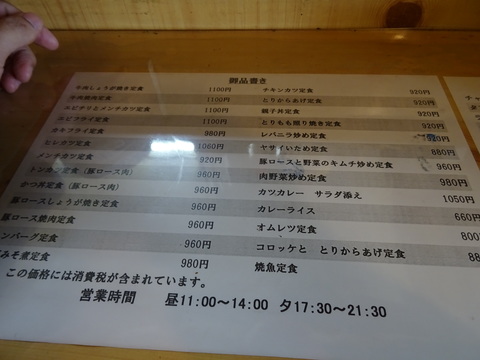 御品書き
牛肉しょうが焼き定食 1100円
牛肉焼肉定食 1100円
エビフライとメンチカツ定食 1100円
エビフライ定食 1100円
カキフライ定食 980円
ヒレカツ定食 1060円
メンチカツ定食 920円
トン定食 (豚ロース肉) 960円
かつ丼定食 (豚ロース肉) 960円
豚ロースしょうが焼き定食 960円
豚ロース焼肉定食 960円
ンバーグ定食 960円
みそ煮定食 980円
チキンカツ定食 920円
とりからあげ定食 920円
親子丼定食 920円
とりもも照り焼き定食 920円
レバニラ炒め定食 20円
ヤサイいため定食 880円
豚ロースと野菜のキムチ炒め定食 960円
肉野菜炒め定食 980円
カツカレー サラダ添え 1050円
カレーライス 660円
オムレツ定食 800
コロッケと とりからあげ定食 88
焼魚定食
この価格には消費税が含まれています。
営業時間 昼11:00〜14:00 夕17:30〜21:30